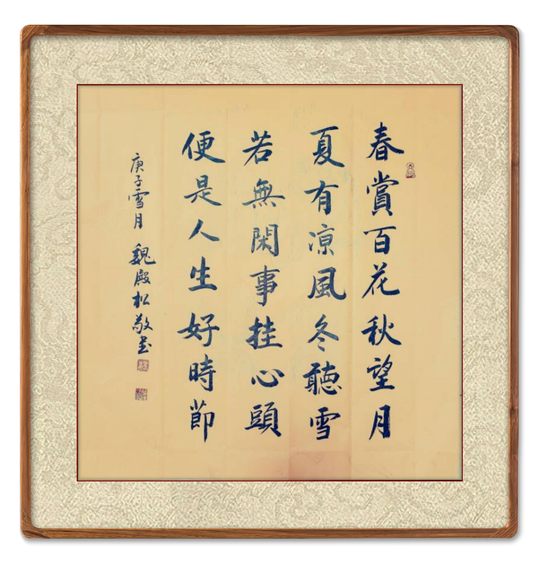 春賞百花秋望月
夏有凉風冬聽雪
若無閑事挂心頭
便是人生好時節
庚子雪月 魏殿松敬書